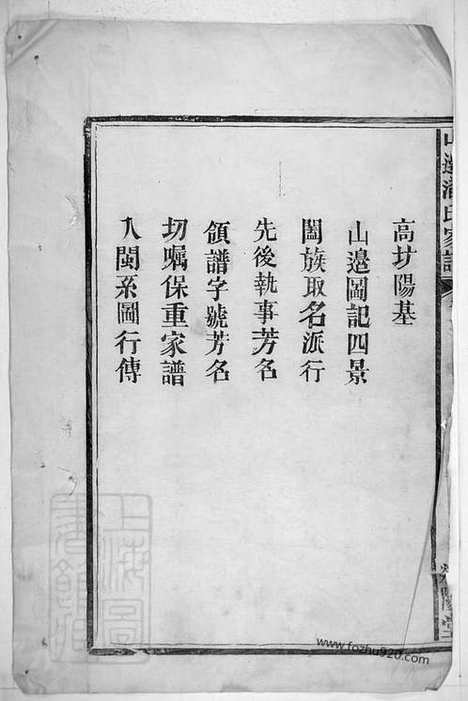 山邉潘氏家譜
滎陽堂
高圤陽基
山邉圖記四景
闔族取名派行
先後執事芳名
領譜字號芳名
切嘱保重家譜
入閩系圖行傳
上海圖書館藏
www.fozhu920.com